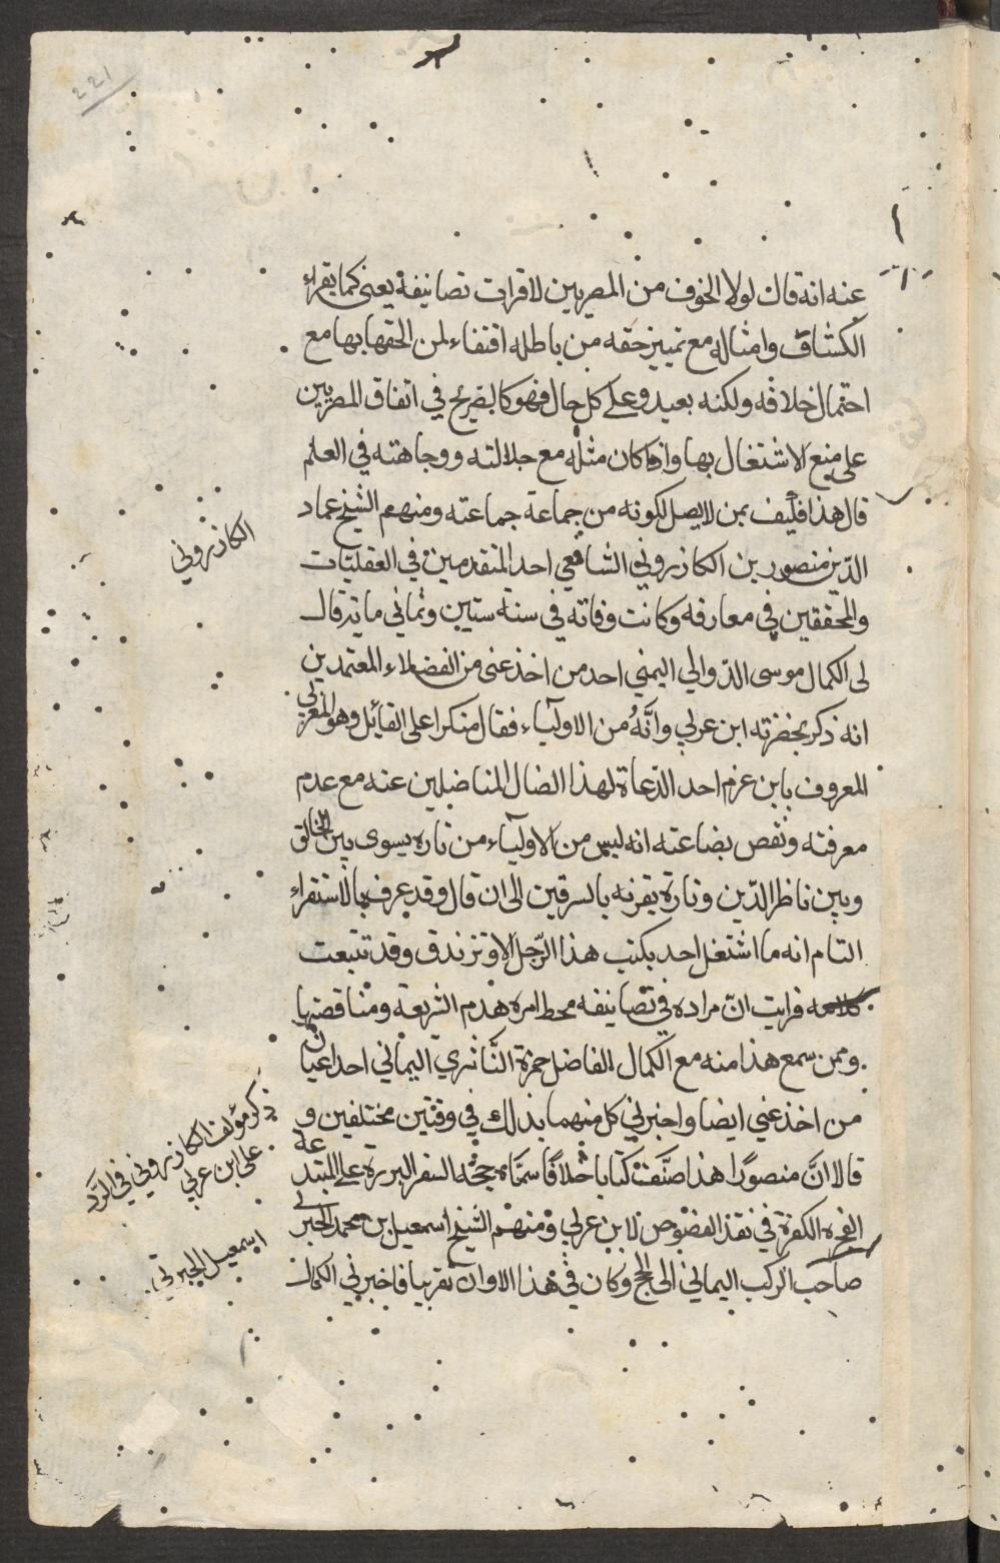 ٢٢١
عنه انه قال لولا الخوف من المصريين لاقرات تصانيفه يعنى كما يقراء
الكشاف وامثاله مع تمييز حقه من باطله اقتفاء لمن الحقها بها مع
احتمال خلافه ولكنه بعيد وعلى كل حال فهو كالصريح في اتفاق المصريين
على منع الاشتغال بها واذا كان مثله مع جلالته ووجاهته في العلم
قال هذا فكيف بمن لا يصل لكونه من جماعة جماعته ومنهم الشيخ عماد
الدين منصور بن الكازروني الشافعي احد المتقدمين في العقليات
والمحققين في معارفه وكانت وفاته في سنة ستين وثماني ماية قال
لى الكمال موسى الدوالي اليمني احد من اخذ عنى من الفضلاء المعتمدين
انه ذكر بحضرته ابن عربي وانه من الاولياء فقال منكرا على القائل وهو المغربي
المعروف بابن عزم احد الدعاة لهذا الضال المناضلين عنه مع عدم
معرفته ونقص بضاعته انه ليس من الاولياء من تاره يسوى بين الخالق
وبين ناظر الدين وتارة يقرنه بالسرقين الى ان قال وقد عرف بالاستقراء
التام انه ما اشتغل احد بكتب هذا الرجل الا وتزندق وقد تتبعت
كلامه فرايت ان مراده في تصانيفه محط امره هدم الشريعة ومناقضتها
وممن سمع هذا منه مع الكمال الفاضل حمزة الناشري اليماني احد اعيان
من اخذ عني ايضا واخبرني كل منهما بذلك في وقتين مختلفين و
قالا ان منصورا هذا صنف كتابا حافلا سماه حجة السفرة البررة على المبتدعة
الفجرة الكفرة في نقد الفصوص لابن عربي ومنهم الشيخ اسمعيل بن محمد الجبرتي
صاحب الركب اليماني الى الحج وكان في هذا الاوان تقريبا فاخبرني الكمال
الكازروني
ذكر مؤلف الكازروني في الرد
على ابن عربي
اسمعيل الجبرتي